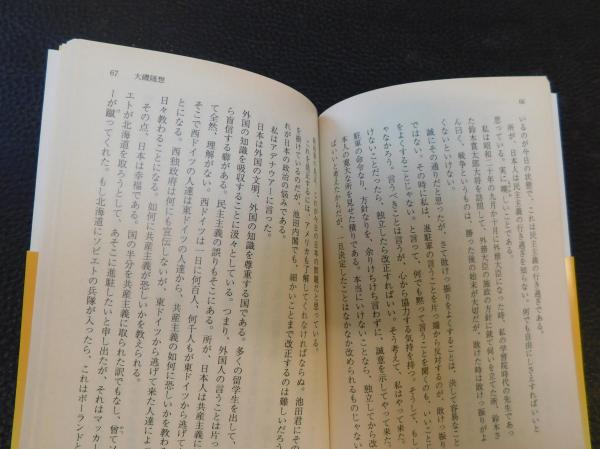 66
いるのが今日の状態で、これは民主主義の行き過ぎである。
所が、日本人は民主主義の行き過ぎを知らない。何でも自由にしさえすればいいと
思っている。実に嘆しいことである。
私は昭和二十年の九月か十月に外務大臣になった時、私の学習院時代の先生であっ
た鈴木貫太郎大将を訪問して、外務大臣の施政の方針に就て伺いを立てた所、鈴木さ
ん曰く、戦争というものは、勝った後の始末が大切だが、敗けた時は敗けっ振りがよ
くないといけない。
誠にその通りだと思ったが、さて敗けっ振りをよくすることは、決して容易なこと
ではない。その時に私は、進駐軍の言うことを片っ端から反対するのが、敗けっ振り
をよくすることじゃない。と言って、何でも黙って言うことを聞くのも、いいことじ
ゃなかろう。言うべきことは言うが、心から協力する気持を持つ。そうしても、もしい
けないことだったら、独立したら改正すればいい。そう考えて、私はやって来た。
駐軍の命令なり、方針なりを、余りけちけち言わずに、誠意を示してやって来た。
本人の寛大な所を見せた積りである。本当にいけないことなら、独立してから改
ばいいと考えたからだが、一旦決定したことはなかなか改められるものじゃない。
67 大磯随想
それが今日の日本の問題だと思っている。
これに就いては、アメリカも了解してくれなければならぬ。池田君にその
を授けているのだが、池田内閣でも、細かいことまで改正するのは難しいだろう
れが日本の政治の悩みである。
私はアデナウアーに言った。
日本は外国の文明、外国の知識を尊重する国である。多くの留学生を出して、
外国の知識を吸収することに汲々としている。つまり、外国人の言うことは片っ
ら盲信する癖がある。民主主義の誤りもそこにある。所が、日本人は共産主義に
て全然、理解がない。西ドイツは一日に何百人、何千人もが東ドイツから逃げて
そこで西ドイツの人達は東ドイツの人達から、共産主義の如何に恐しいかを
とになる。西独政府は何にも宣伝しないが、東ドイツから逃げて来た人達によ
日々教わることになる。如何に共産主義が恐しいかを教えられる。
その点、日本は幸福である。国の半分を共産主義に取られた訳でもなし、曾て
エトが北海道を取ろうとして、あそこに進駐したいと申し出たが、それはマッカー
ーが蹴ってくれた。もし北海道にソビエトの兵隊が入ったら、これはポーランドと